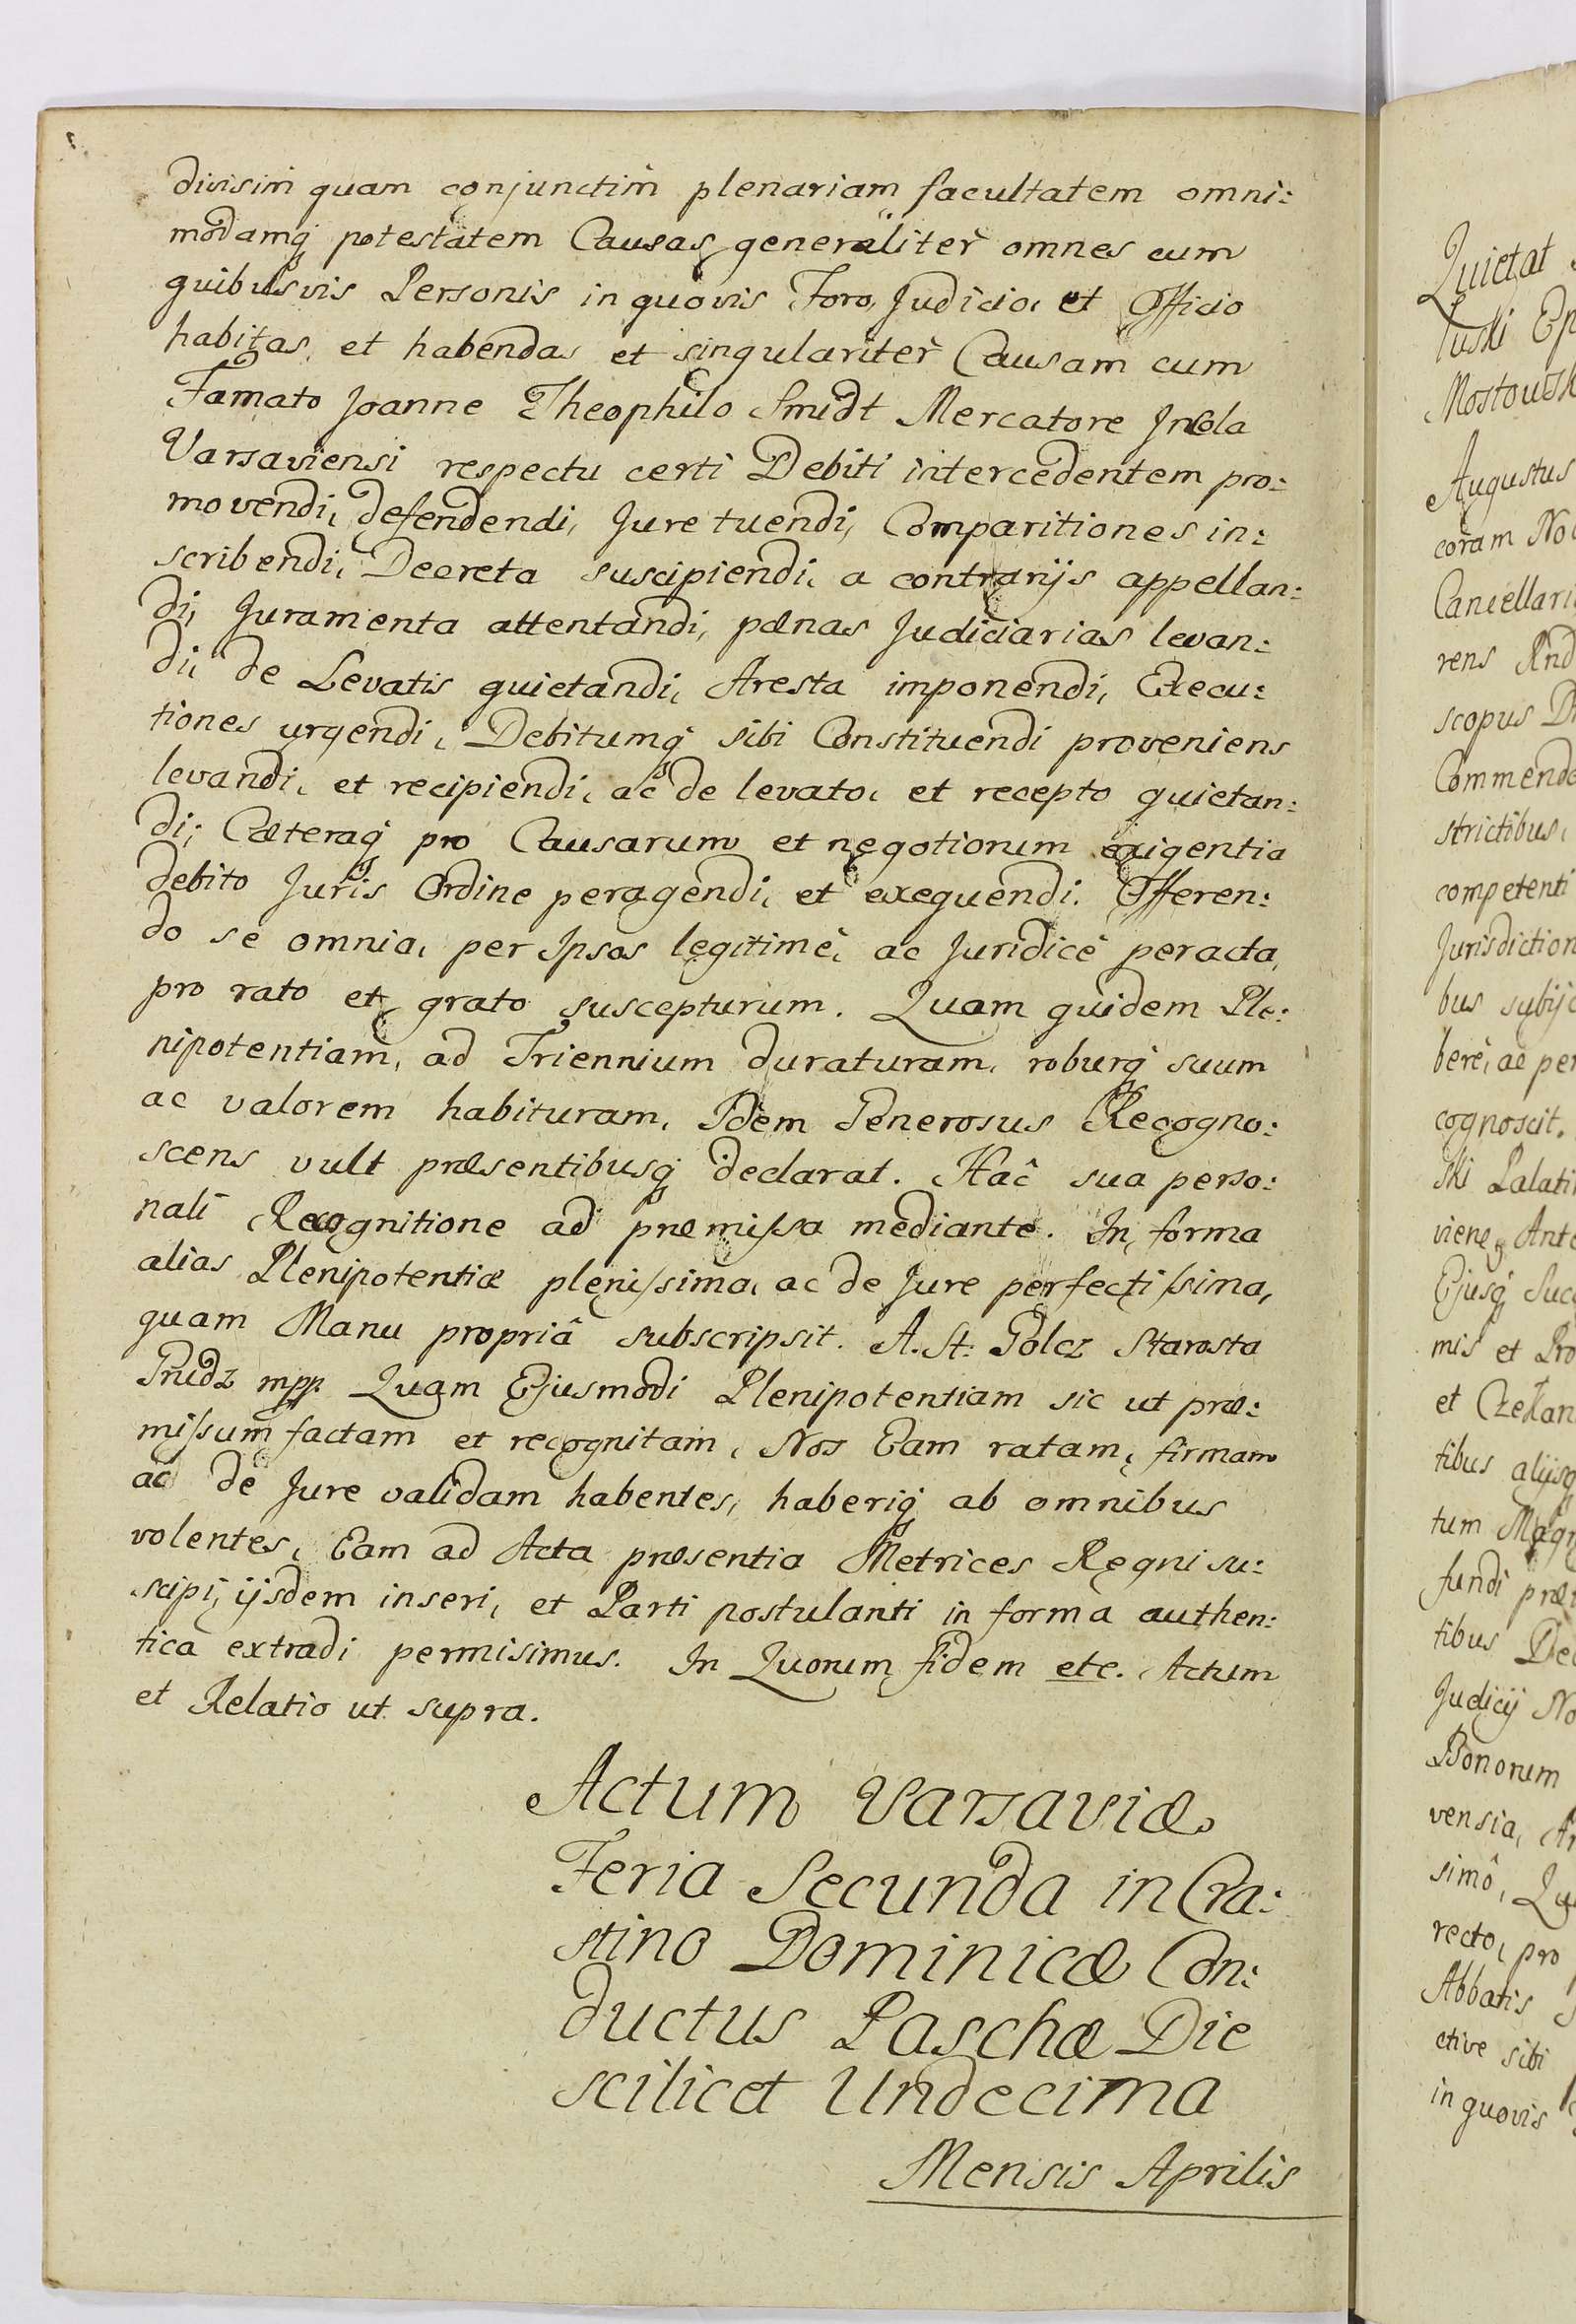 divisim quam conjunctim plenariam facultatem omni:
modamq potestatem Causas generaliter omnes cum
quibusvis Personis in quovis Foro, Judicio, et Officio
habitas, et habendas et singulariter Causam cum
Famato Joanne Theophilo Smidt Mercatore Incola
Varsaviensi respectu certi Debiti intercedentem pro:
movendi, defendendi, Jure tuendi, Comparitiones in:
scribendi, Decreta suscipiendi, a contrarijs appellan:
di, Juramenta attentandi, pænas Judiciarias levan:
di, de Levatis quietandi, Aresta imponendi, Execu:
tiones urgendi, Debitumq sibi Constituendi proveniens
levandi, et recipiendi, ac de levato, et recepto quietan:
di; Cæteraq pro Causarum et negotiorum exigentia
debito Juris Ordine peragendi, et exequendi. Offeren:
do se omnia, per Ipsos legitimè, ac Juridicè peracta,
pro rato et grato suscepturum. Quam quidem Ple:
nipotentiam, ad Triennium duraturam, roburq suum
ac valorem habituram, Idem Generosus Recogno:
scens vult præsentibusq declarat. Hac sua perso:
nali Recognitione ad præmissa mediante. In forma
alias Plenipotentiæ plenissima, ac de Jure perfectissima,
quam Manu propriâ subscripsit. A. St: Golcz Starosta
Grudz mpp. Quam Ejusmodi Plenipotentiam sic ut præ:
missum factam et recognitam, Nos Eam ratam, firmam
ac de Jure validam habentes, haberiq ab omnibus
volentes, Eam ad Acta præsentia Metrices Regni su:
scipi, ijsdem inseri, et Parti postulanti in forma authen:
tica extradi permisimus. In Quorum fidem etc. Actum
et Relatio ut supra.
Actum Varsaviæ
Feria Secunda in Cra:
stino Dominicæ Con:
ductus Paschæ Die
scilicet Undecima
Mensis Aprilis
Quietat
Augustus
coram
rens
scopus
strictibus,
competenti
bus
cognoscit.
mis et
et
tibus
tum
fundi
tibus
Bonorum
vensia,
simô,
recto, pro
Abbatis
ctive sibi
in quovis